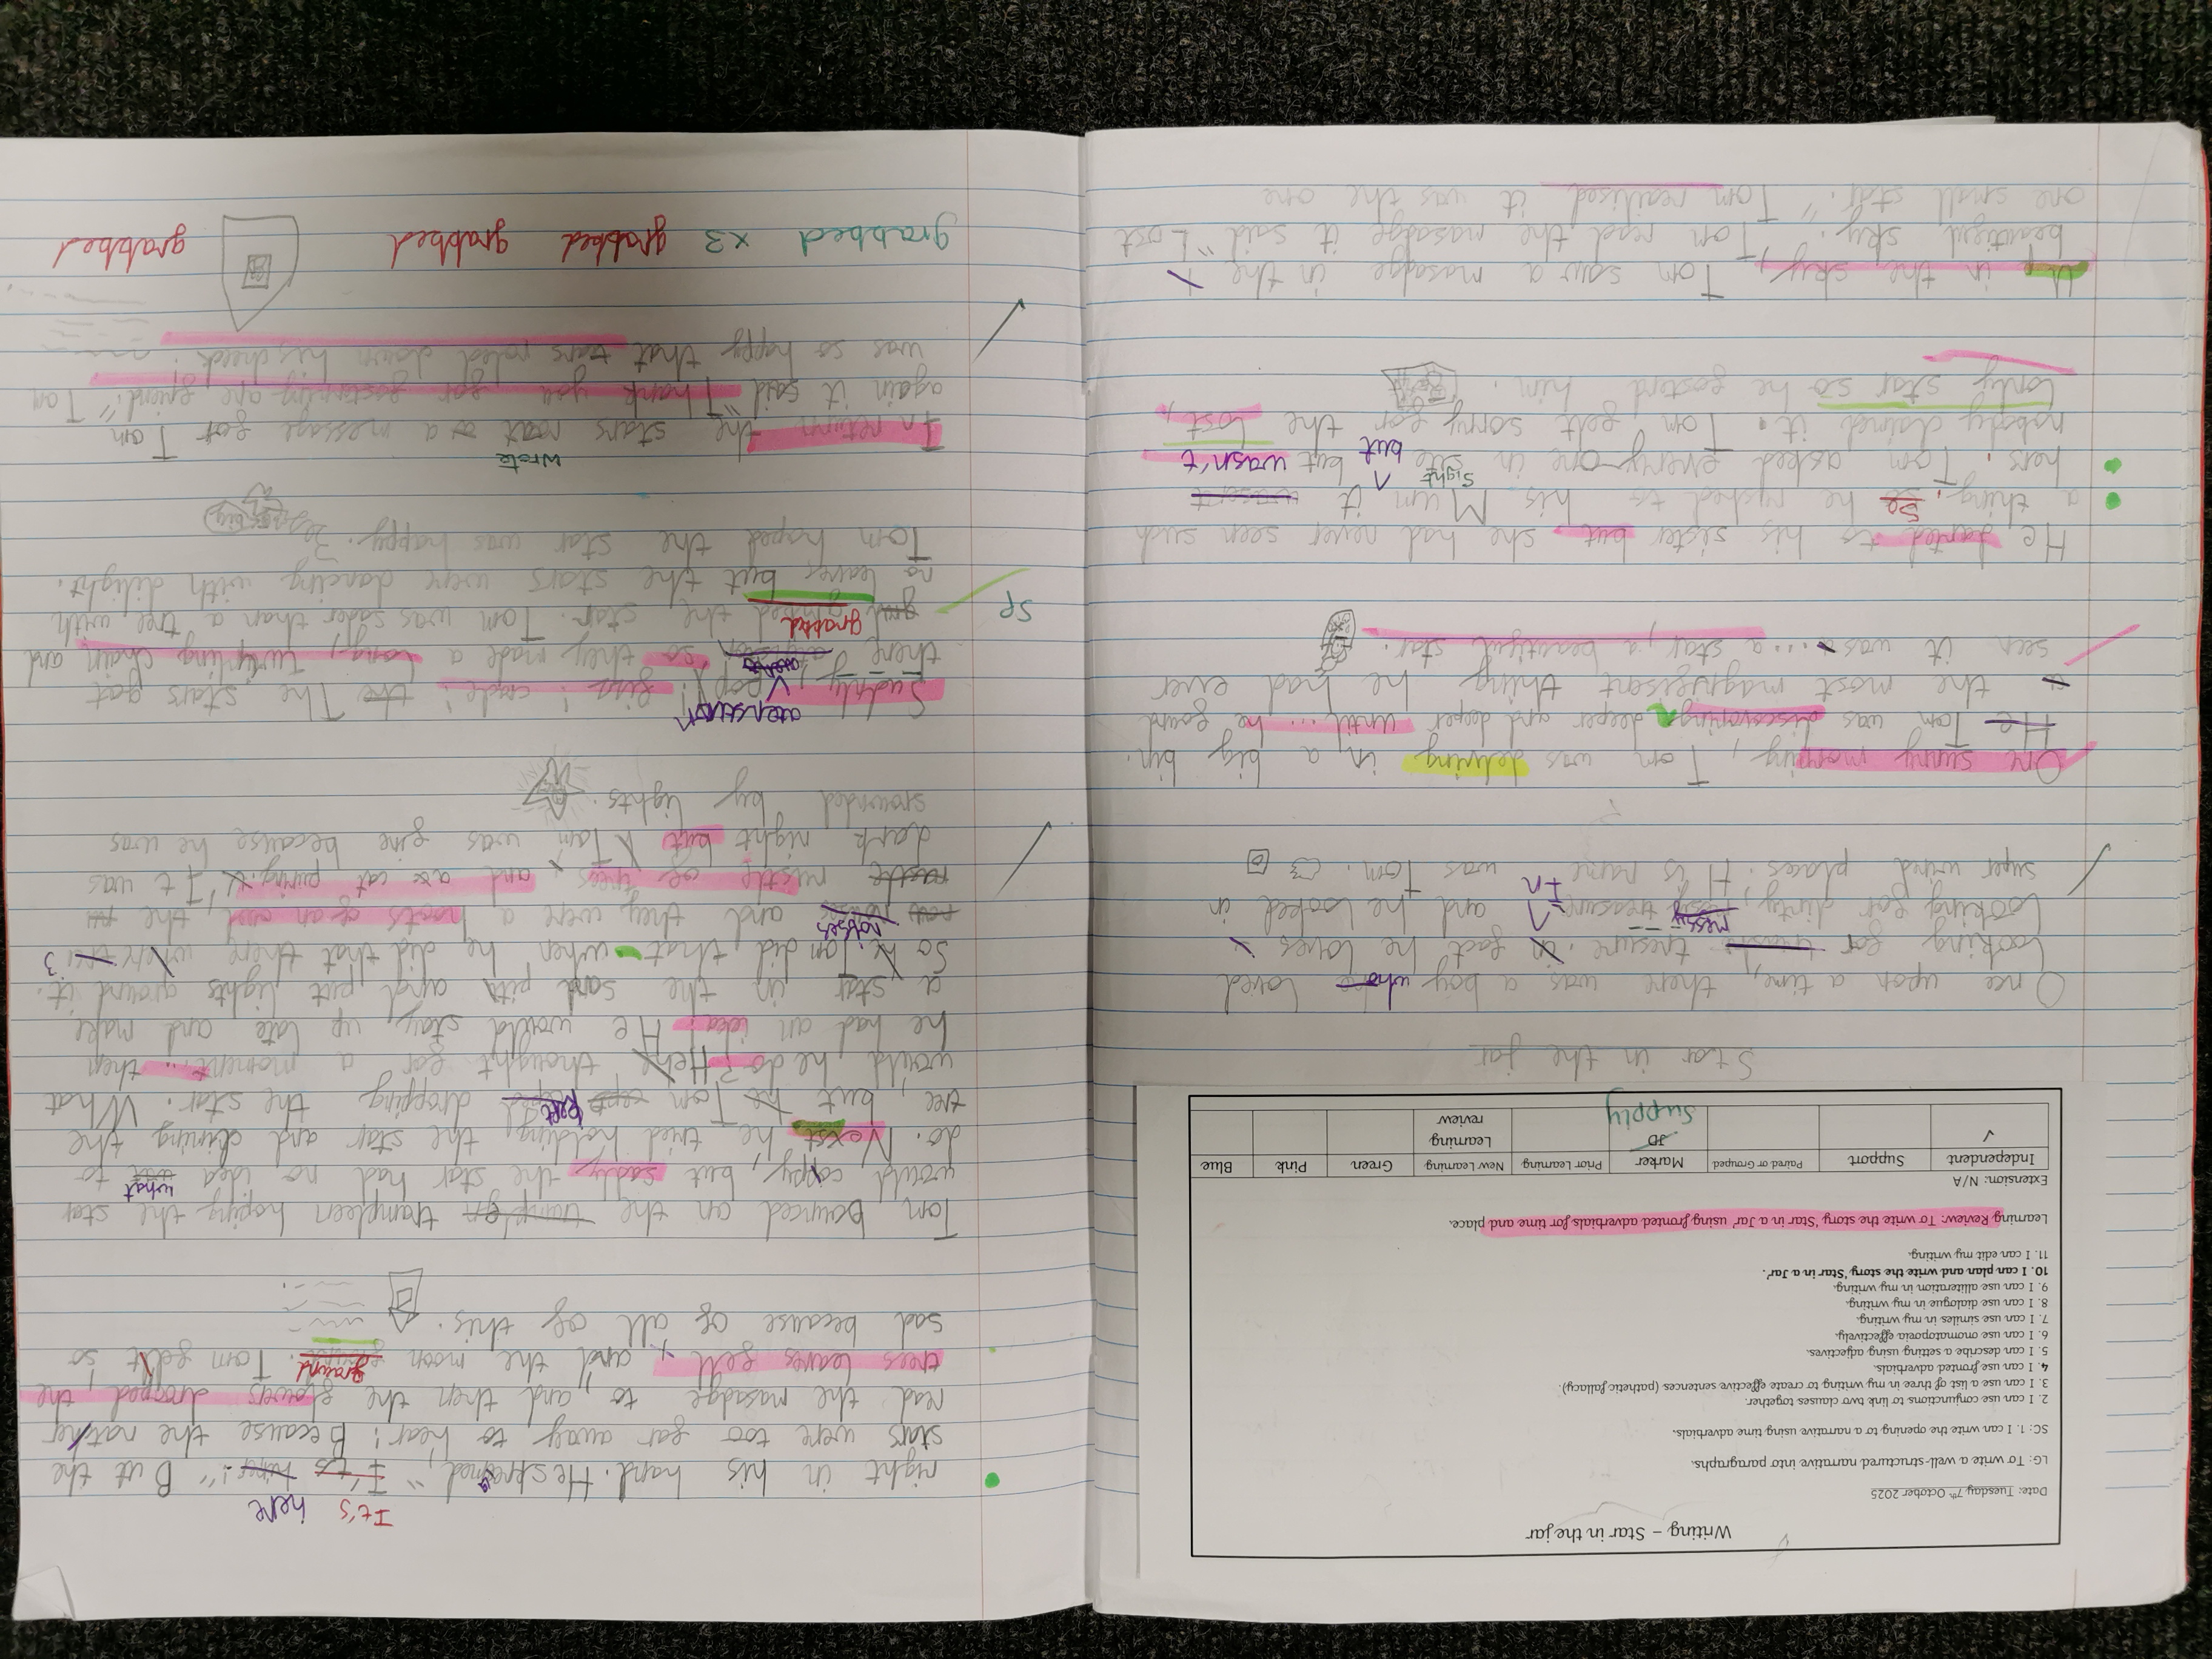 Writing – Star in the jar
Date: Tuesday 7th October 2025
LG: To write a well-structured narrative into paragraphs.
SC: 1. I can write the opening to a narrative using time adverbials.
2. I can use conjunctions to link two clauses together.
3. I can use a list of three in my writing to create effective sentences (pathetic fallacy).
4. I can use fronted adverbials.
5. I can describe a setting using adjectives.
6. I can use onomatopoeia effectively.
7. I can use similes in my writing.
8. I can use dialogue in my writing.
9. I can use alliteration in my writing.
10. I can plan and write the story 'Star in a Jar'.
11. I can edit my writing.
Learning Review: To write the story 'Star in a Jar' using fronted adverbials for time and place.
Extension: N/A
Independent Support Paired or Grouped Marker Prior Learning New Learning Green Pink Blue
✓ JD Learning review
Supply
Star in the jar
Once upon a time, there was a boy who loved
looking for tresure. fact he loves
messy In
looking for dirty, treasure and he looked in
super wird places. His name was Tom.
One sunny morning, Tom was delving in a big bin.
He Tom was discovering deeper and deeper until.... he found
the most magnifisent thing he had ever
seen it was .... a star, a beautiful star.
He darted to his sister but she had never seen such
a thing. So he rushed to his Mum it wasent
sight but wasn't
hers. Tom asked every-one in site but
nobody claimed it. Tom felt sorry for the lost,
lonly star so he fosterd him.
Up in the sky, Tom saw a masadge in the
beautiful sky. Tom read the masadge it said "Lost
one small star." Tom realised it was the one
It's here
right in his hand. He screamed "It's !" But the
stars were too far away to hear! Because the nather
read the masadge to and then the flowers drooped, the
ground
trees leaves fell, and the moon . Tom felt so
sad because of all of this.
Tom bounced on the trampleen hoping the star
what
would coppy, but sadly the star had no idea to
do. Next he tried holding the star and climing the
kept
tree, but Tom dropping the star. What
would he do? He thought for a moment... then
he had an idea. He would stay up late and make
a star in the sand pith and put lights around it.
So Tom did that when he did that there were
noises
and they were a hoots of an owl, the
rustle of trees, and a cat puring. It was
dark night but Tom was fine because he was
srounded by lights.
atenshun
Sudnly, pop! fizz! crack! The stars got
there so they made a long, twirling chain and
grabbed
the star. Tom was sader than a tree with
Sp
no leaves but the stars were dancing with dilight.
Tom hoped the star was happy.
wrote
In return the stars a message for Tom
again it said "Thank you for fostering are friend." Tom
was so happy that tears roled down his cheek.
grabbed x3 grabbed grabbed grabbed